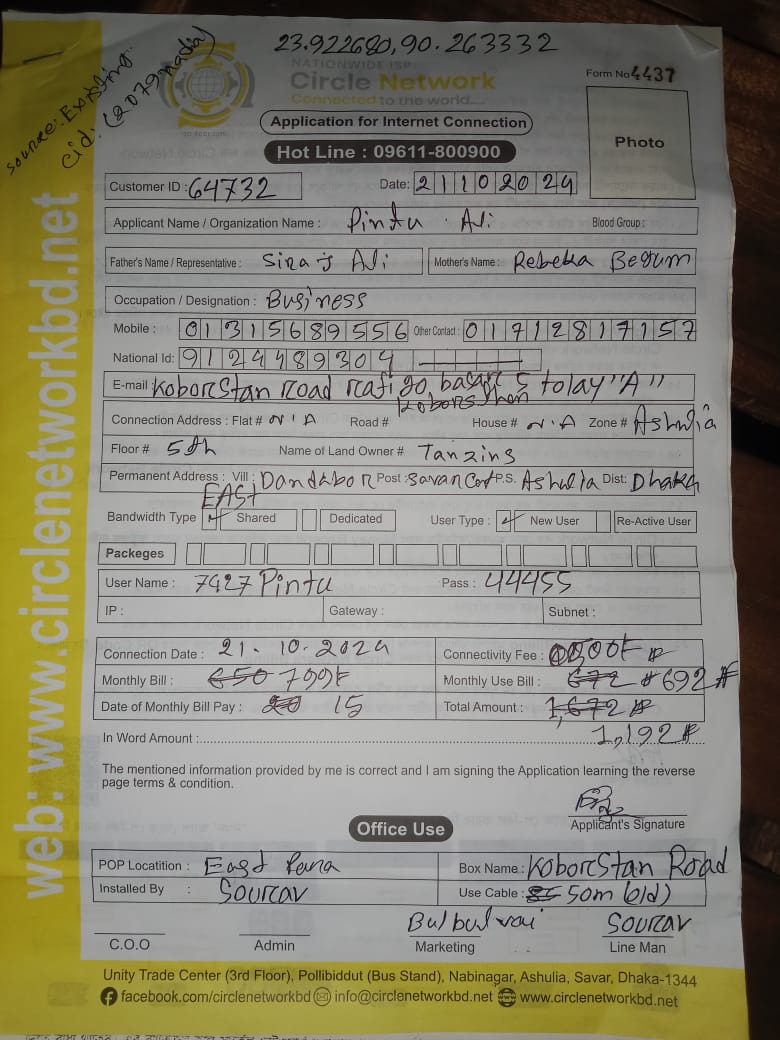 23.922680,90.263332
source: Existing
cid: (2079nadia)
NATIONWIDE ISP
Circle Network
Connected to the world....
Form No 4437
Application for Internet Connection
Photo
Hot Line : 09611-800900
Customer ID : 64732
Date: 21102024
Applicant Name / Organization Name : Pintu Ali
Blood Group :
Father's Name / Representative : Siraj Ali
Mother's Name : Rebeka Begum
Occupation / Designation : Business
Mobile : 01315689556 Other Contact : 01712817157
National Id: 9124489304
E-mail : Koborstan road 5 tolay "A"
Connection Address : Flat # N'A Road # House # N.A Zone # Ashulia
Floor # 5th Name of Land Owner # Tanzins
Permanent Address : Vill : Dandabor Post : Savar Cant P.S. Ashulia Dist: Dhaka
EAST
Bandwidth Type Shared Dedicated User Type : New User Re-Active User
Packeges
User Name : 7427 Pintu Pass : 44455
IP : Gateway : Subnet :
Connection Date : 21. 10. 2024 Connectivity Fee : 500৳
Monthly Bill : 650 799৳ Monthly Use Bill : 672 692
Date of Monthly Bill Pay : 20 15 Total Amount : 1,672
In Word Amount : 1,192
The mentioned information provided by me is correct and I am signing the Application learning the reverse
page terms & condition.
Applicant's Signature
Office Use
POP Locatition : East Para Box Name : Koborstan Road
Installed By : Sourav Use Cable : 50m (old)
Bulbul vai Sourav
C.O.O Admin Marketing Line Man
Unity Trade Center (3rd Floor), Pollibiddut (Bus Stand), Nabinagar, Ashulia, Savar, Dhaka-1344
facebook.com/circlenetworkbd info@circlenetworkbd.net www.circlenetworkbd.net
web: www.circlenetworkbd.net